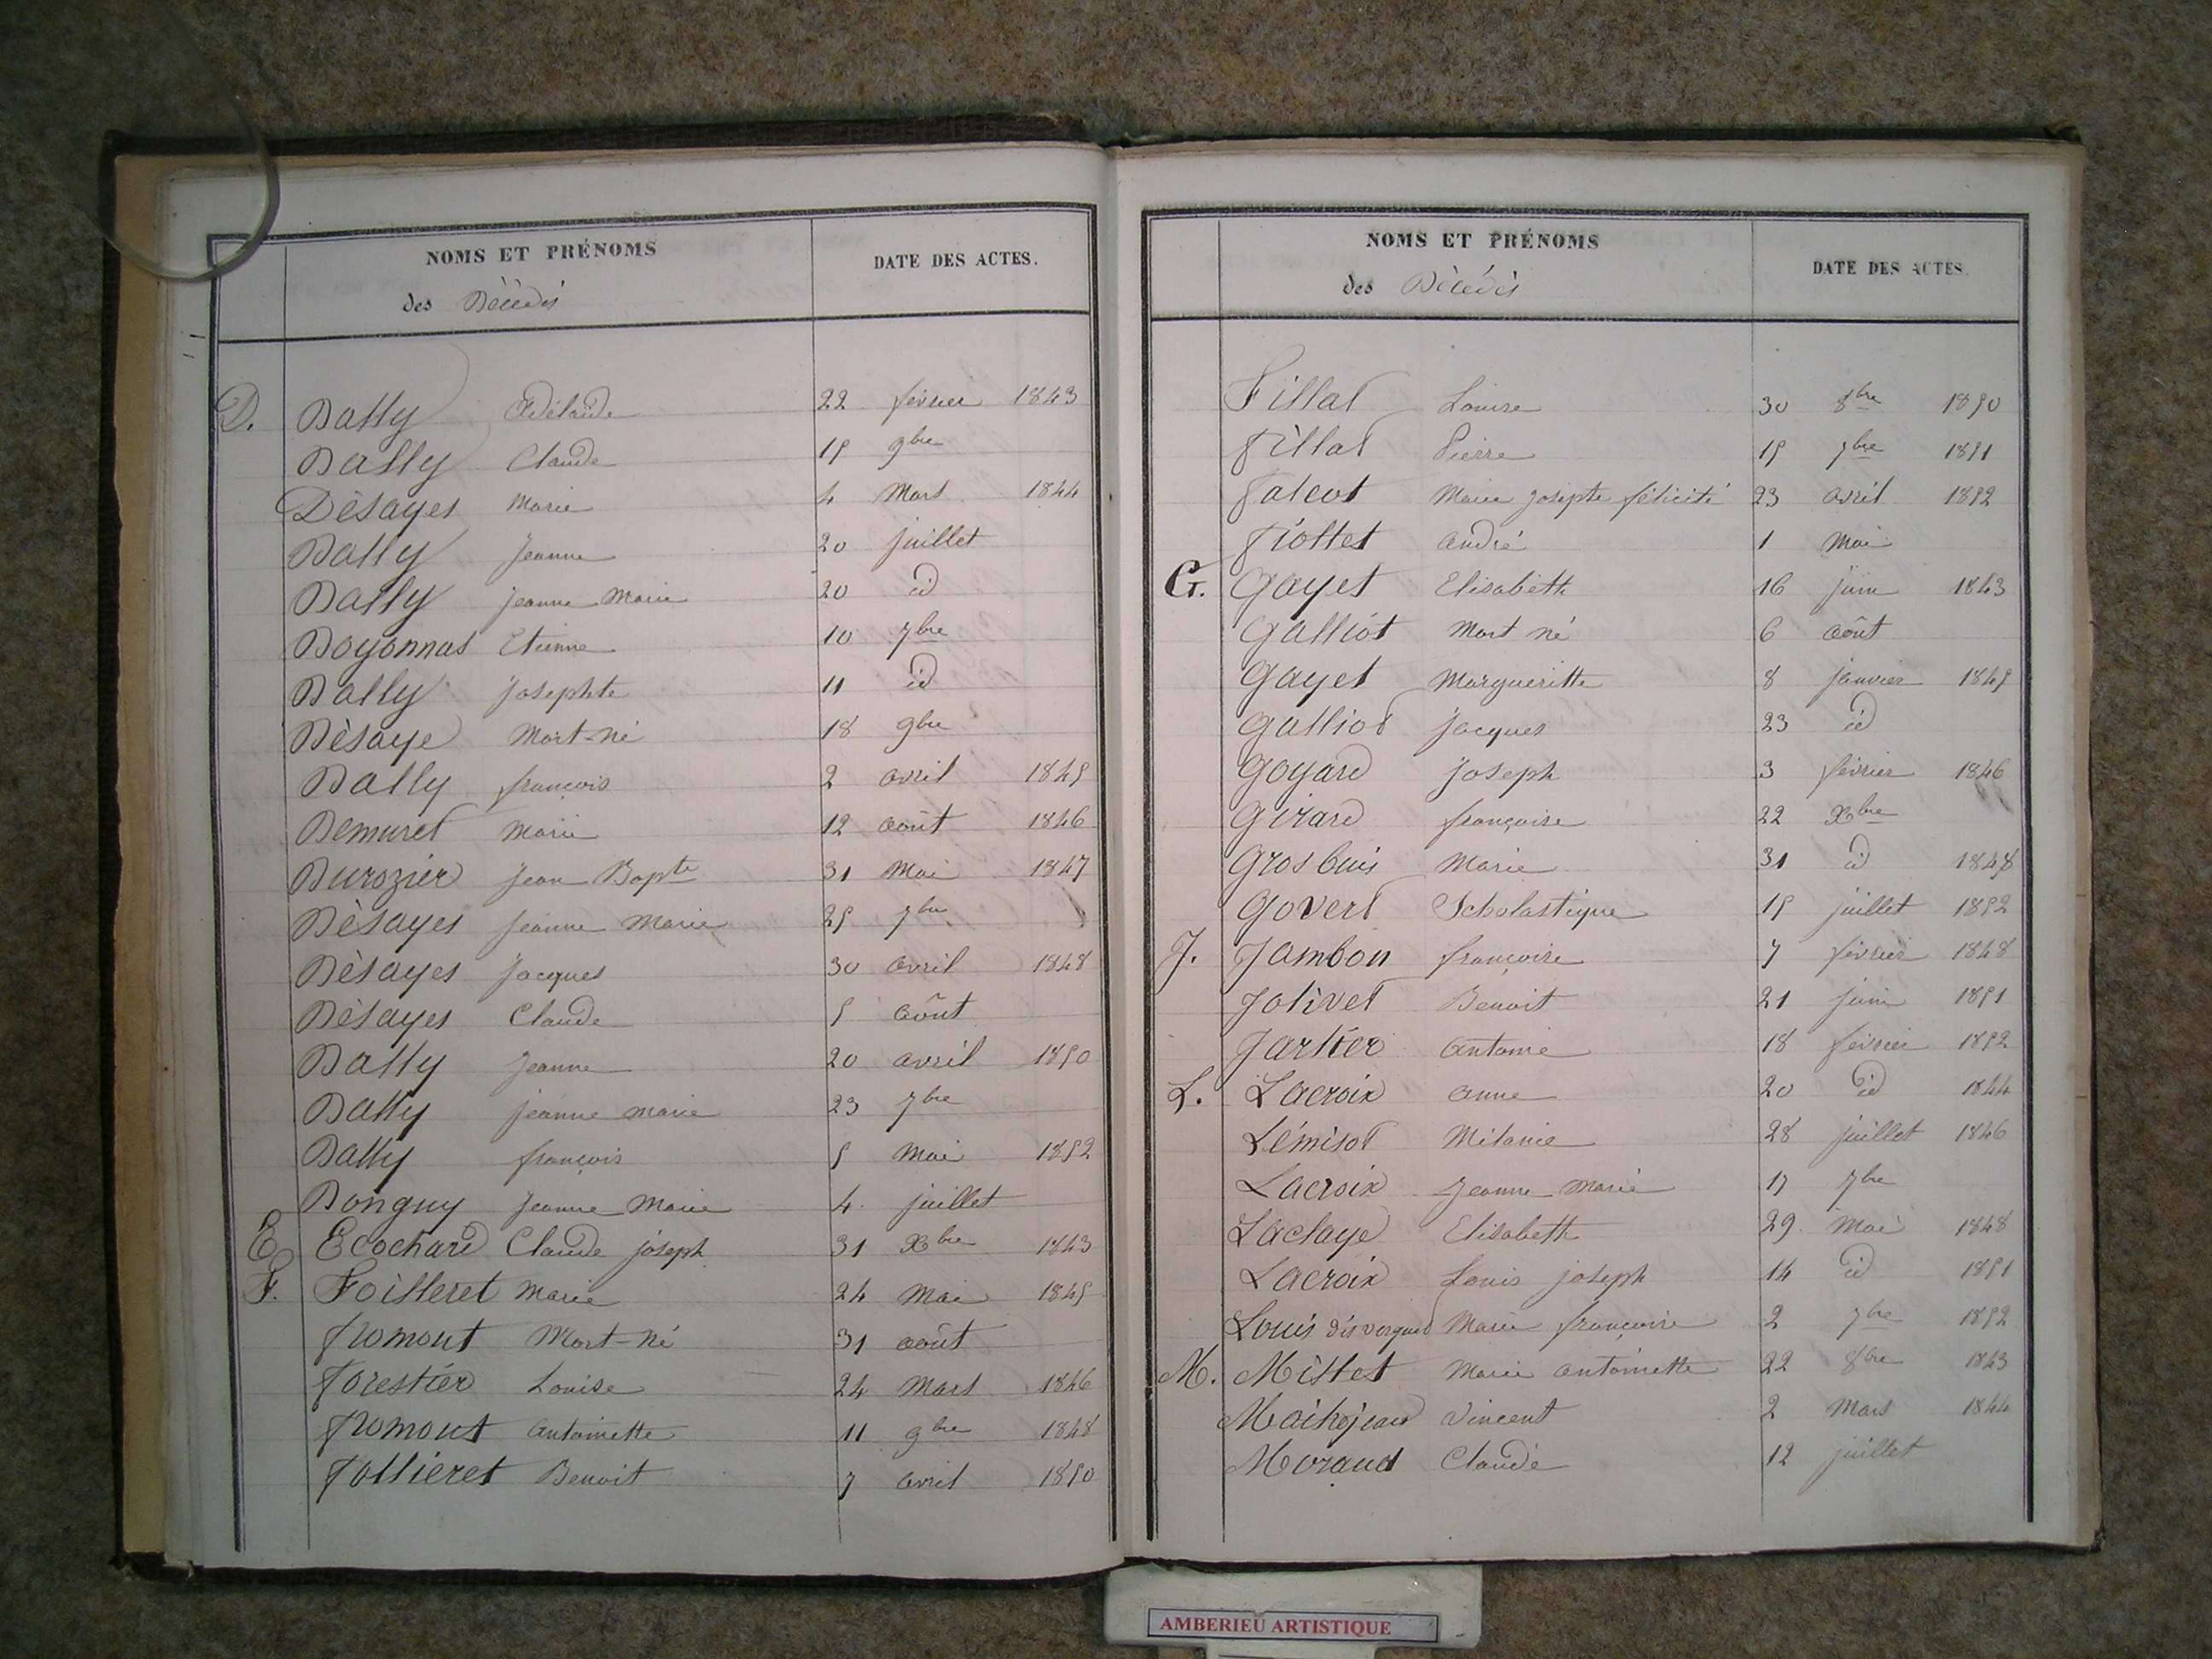 NOMS ET PRÉNOMS
DATE DES ACTES.
des Décédés
D. Dally Adélaïde 22 février 1843
Dally Claude 15 9bre
Dèsayes Marie 4 Mars 1844
Dally Jeanne 20 juillet
Dally jeanne Marie 20 id
Doyonnas Etienne 10 7bre
Dally Josephte 11 id
Dèsaye Mort-né 18 9bre
Dally françois 2 avril 1845
Demuret Marie 12 août 1846
Durozier Jean Bapte 31 Mai 1847
Dèsayes Jeanne Marie 25 7bre
Dèsayes Jacques 30 avril 1848
Dèsayes Claude 5 août
Dally Jeanne 20 avril 1850
Dally jeanne marie 23 7bre
Dally françois 5 Mai 1852
Donguy Jeanne Marie 4 juillet
E. Ecochard Claude joseph 31 Xbre 1843
F. Foilleret Marie 24 Mai 1845
fromont Mort-né 31 août
forestier Louise 24 Mars 1846
fromont Antoinette 11 9bre 1848
follieret Benoit 7 avril 1850
NOMS ET PRÉNOMS
DATE DES ACTES.
des Décédés
Fillat Louise 30 8bre 1850
fillat Pierre 15 7bre 1851
falcot Marie josepte félicité 23 avril 1852
fiottet andré 1 Mai
G. Gayet Elisabeth 16 juin 1843
Galliot Mort né 6 août
Gayet Margueritte 8 janvier 1845
Galliot jacques 23 id
Goyard Joseph 3 février 1846
Girard françoise 22 Xbre
Grosbuis Marie 31 id 1848
Govert Scholastique 15 juillet 1852
J. Jambon françoise 7 février 1848
Jolivet Benoit 21 juin 1851
Jartier Antoine 18 février 1852
L. Lacroix anne 20 id 1844
Lémisot Mélanie 28 juillet 1846
Lacroix Jeanne Marie 17 7bre
Laclaye Elisabeth 29 Mai 1848
Lacroix Louis joseph 14 id 1851
Louis dèsvergnes Marie françoise 2 7bre 1852
M. Millet Marie antoinette 22 8bre 1843
Vincent 2 Mars 1844
Moraud Claude 12 juillet
AMBERIEU ARTISTIQUE